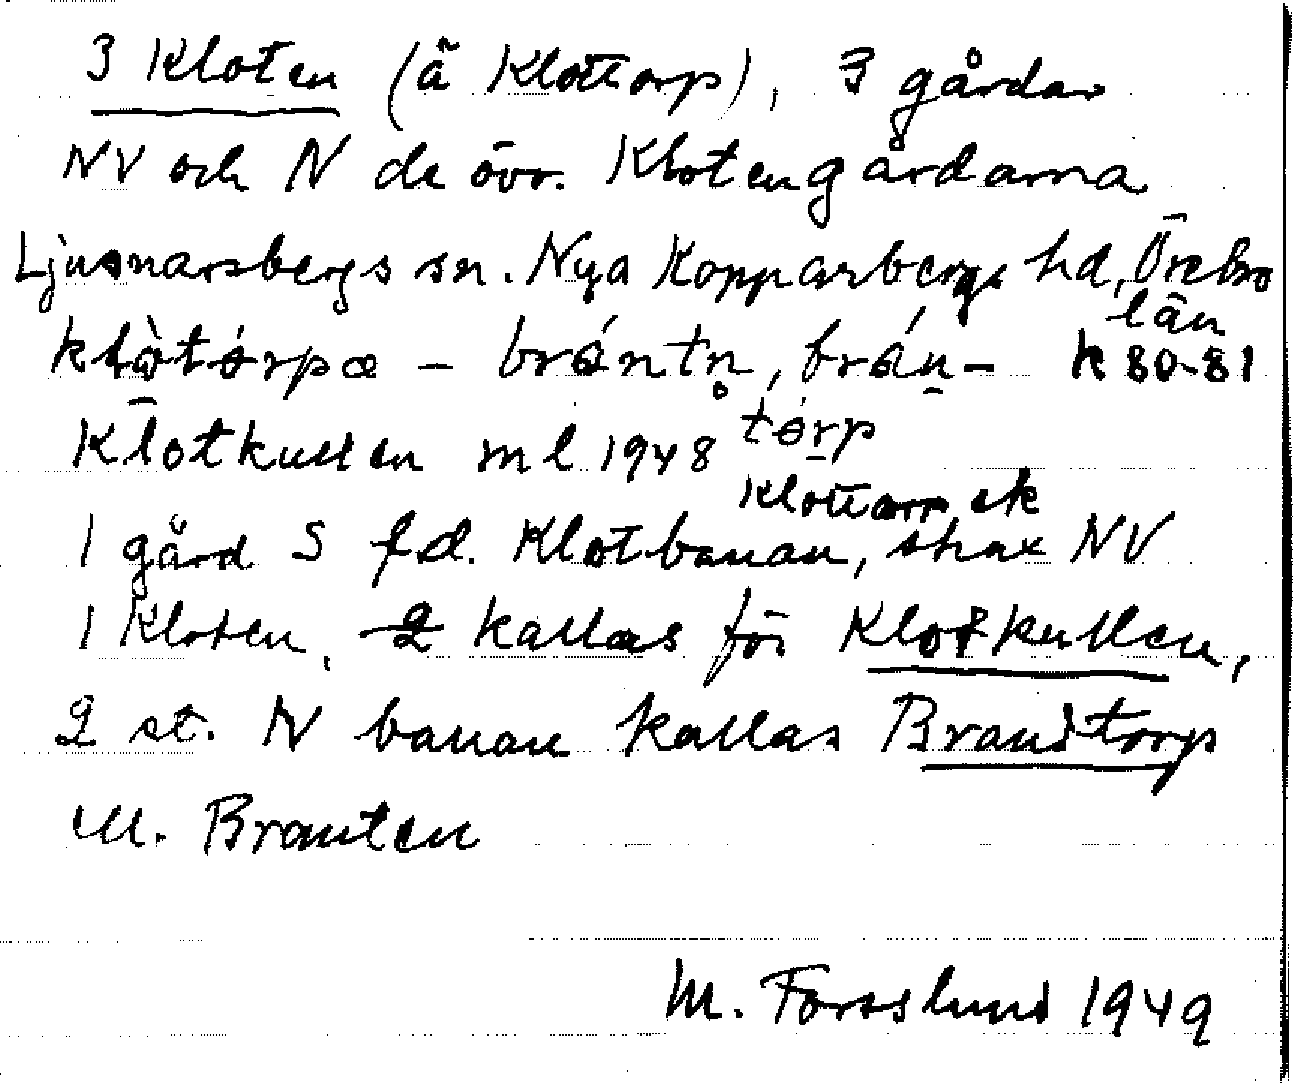 3 Kloten (ä Klottorp), 3 gårdar
NV och N de övr. Klotengårdarna
Ljusnarsbergs sn. Nya Kopparbergs hd, Örebro
län
klòtórpæ – brántn̥, brán-
k 80-81
tórp
Klotkullen ml 1948
Klottorp ek
1 gård S f.d. Klotbanan, strax NV
1 Kloten, 2 kallas för Klotkullen,
2 st. N banan kallas Brandtorp
ell. Branten
M. Forsslund 1949